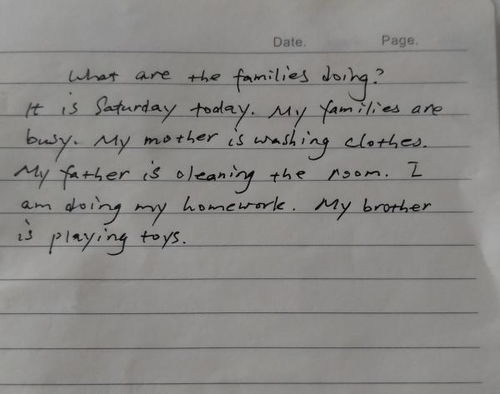 Date. Page.
What are the families doing?
It is Saturday today. My families are
busy. My mother is washing clothes.
My father is cleaning the room. I
am doing my homework. My brother
is playing toys.